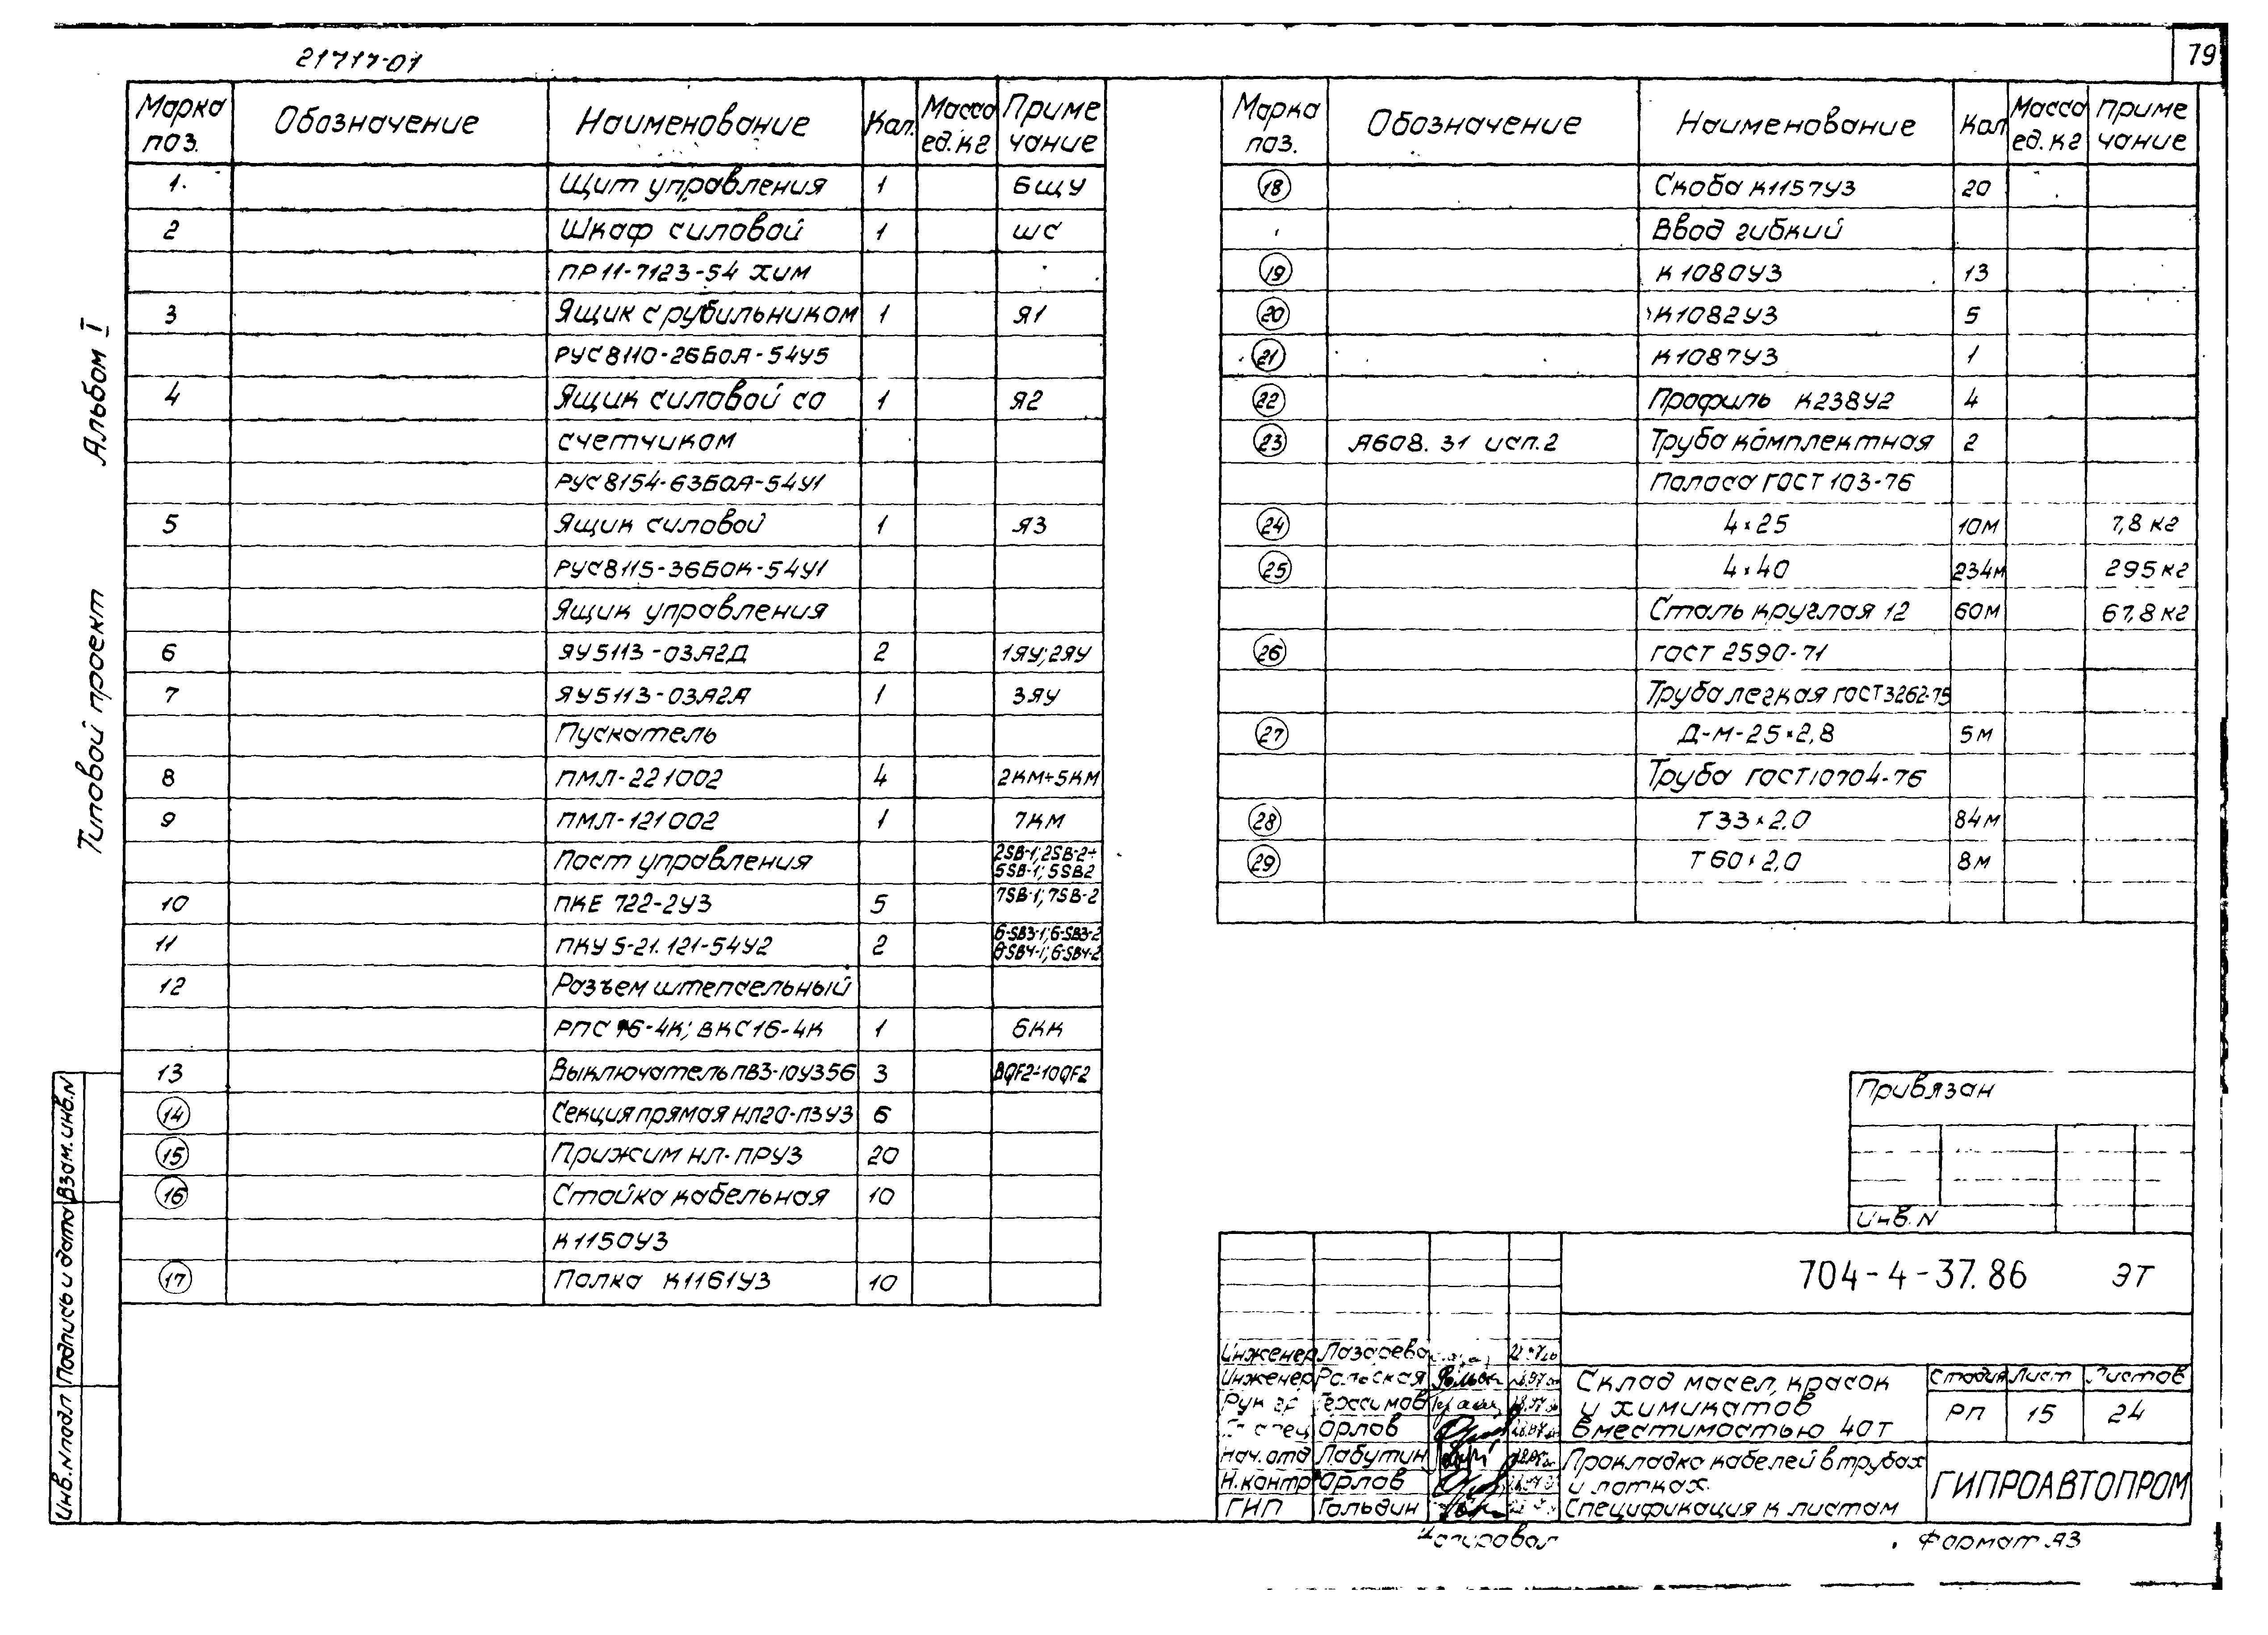 21717-01
79
Альбом I
Типовой проект
Марка поз. Обозначение Наименование Кол. Масса ед. кг Примечание
1. Щит управления 1 6ЩУ
2 Шкаф силовой 1 ШС
ПР11-7123-54 ХИМ
3 Ящик с рубильником 1 Я1
РУС8110-26Б0А-54У5
4 Ящик силовой со 1 Я2
счетчиком
РУС8154-63Б0А-54У1
5 Ящик силовой 1 Я3
РУС8115-36Б0К-54У1
Ящик управления
6 ЯУ5113-03А2Д 2 1ЯУ; 2ЯУ
7 ЯУ5113-03А2А 1 3ЯУ
Пускатель
8 ПМЛ-221002 4 2КМ÷5КМ
9 ПМЛ-121002 1 7КМ
Пост управления 2SB-1; 2SB-2÷ 5SB-1; 5SB2
10 ПКЕ 722-2У3 5 7SB-1; 7SB-2
11 ПКУ 5-21.121-54У2 2 6-SB3-1; 6-SB3-2 6-SB4-1; 6-SB4-2
12 Разъем штепсельный
РПС 16-4К; ВКС16-4К 1 6КК
13 Выключатель ПВ3-10У356 3 8QF2÷10QF2
14 Секция прямая НЛ20-П3У3 6
15 Прижим НЛ-ПРУ3 20
16 Стойка кабельная 10
К1150У3
17 Полка К1161У3 10
Марка поз. Обозначение Наименование Кол Масса ед. кг Примечание
18 Скоба К1157У3 20
Ввод гибкий
19 К1080У3 13
20 К1082У3 5
21 К1087У3 1
22 Профиль К238У2 4
23 А608.31 исп.2 Труба комплектная 2
Полоса ГОСТ 103-76
24 4×25 10м 7,8 кг
25 4×40 234м 295 кг
Сталь круглая 12 60м 67,8 кг
26 ГОСТ 2590-71
Труба легкая ГОСТ3262-75
27 Д-М-25×2,8 5м
Труба ГОСТ10704-76
28 Т33×2.0 84м
29 Т60×2,0 8м
Привязан
Инв. N
704-4-37.86 ЭТ
Инженер Лазарева
Инженер Рольская
Рук гр Герасимов
спец Орлов
Нач. отд Лабутин
Н. контр Орлов
ГИП Гольдин
Склад масел, красок
и химикатов
вместимостью 40т
Стадия Лист Листов
РП 15 24
Прокладка кабелей в трубах
и лотках.
Спецификация к листам
ГИПРОАВТОПРОМ
Копировал
Формат А3
Взам. инв. N
Подпись и дата
Инв. N подл